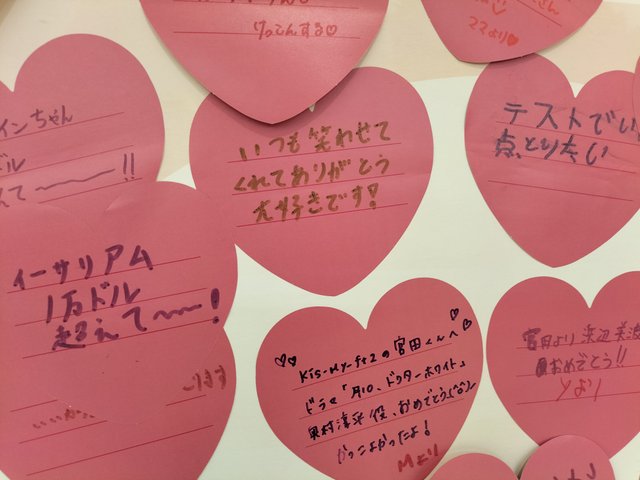 けっこんする♡
ママより♡
インちゃん
ドル
えて〜!!
いつも笑わせて
くれてありがとう
大好きです!
テストでい
点とりたい
イーサリアム
1万ドル
超えて〜!
Kis-My-Ft2の宮田くんへ
ドラマ「月10、ドクターホワイト」
奥村淳平役、おめでとう(^o^)
かっこよかったよ!
Mより
宮田より浜辺美波
おめでとう!!
Yより